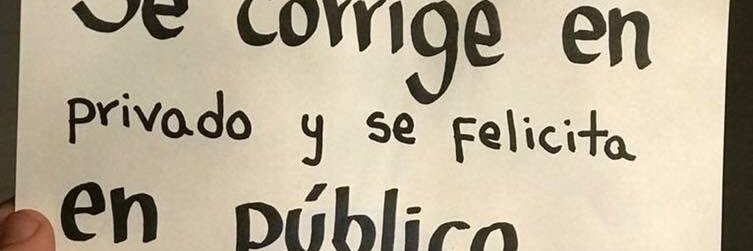 Se corrige en
privado y se felicita
en público